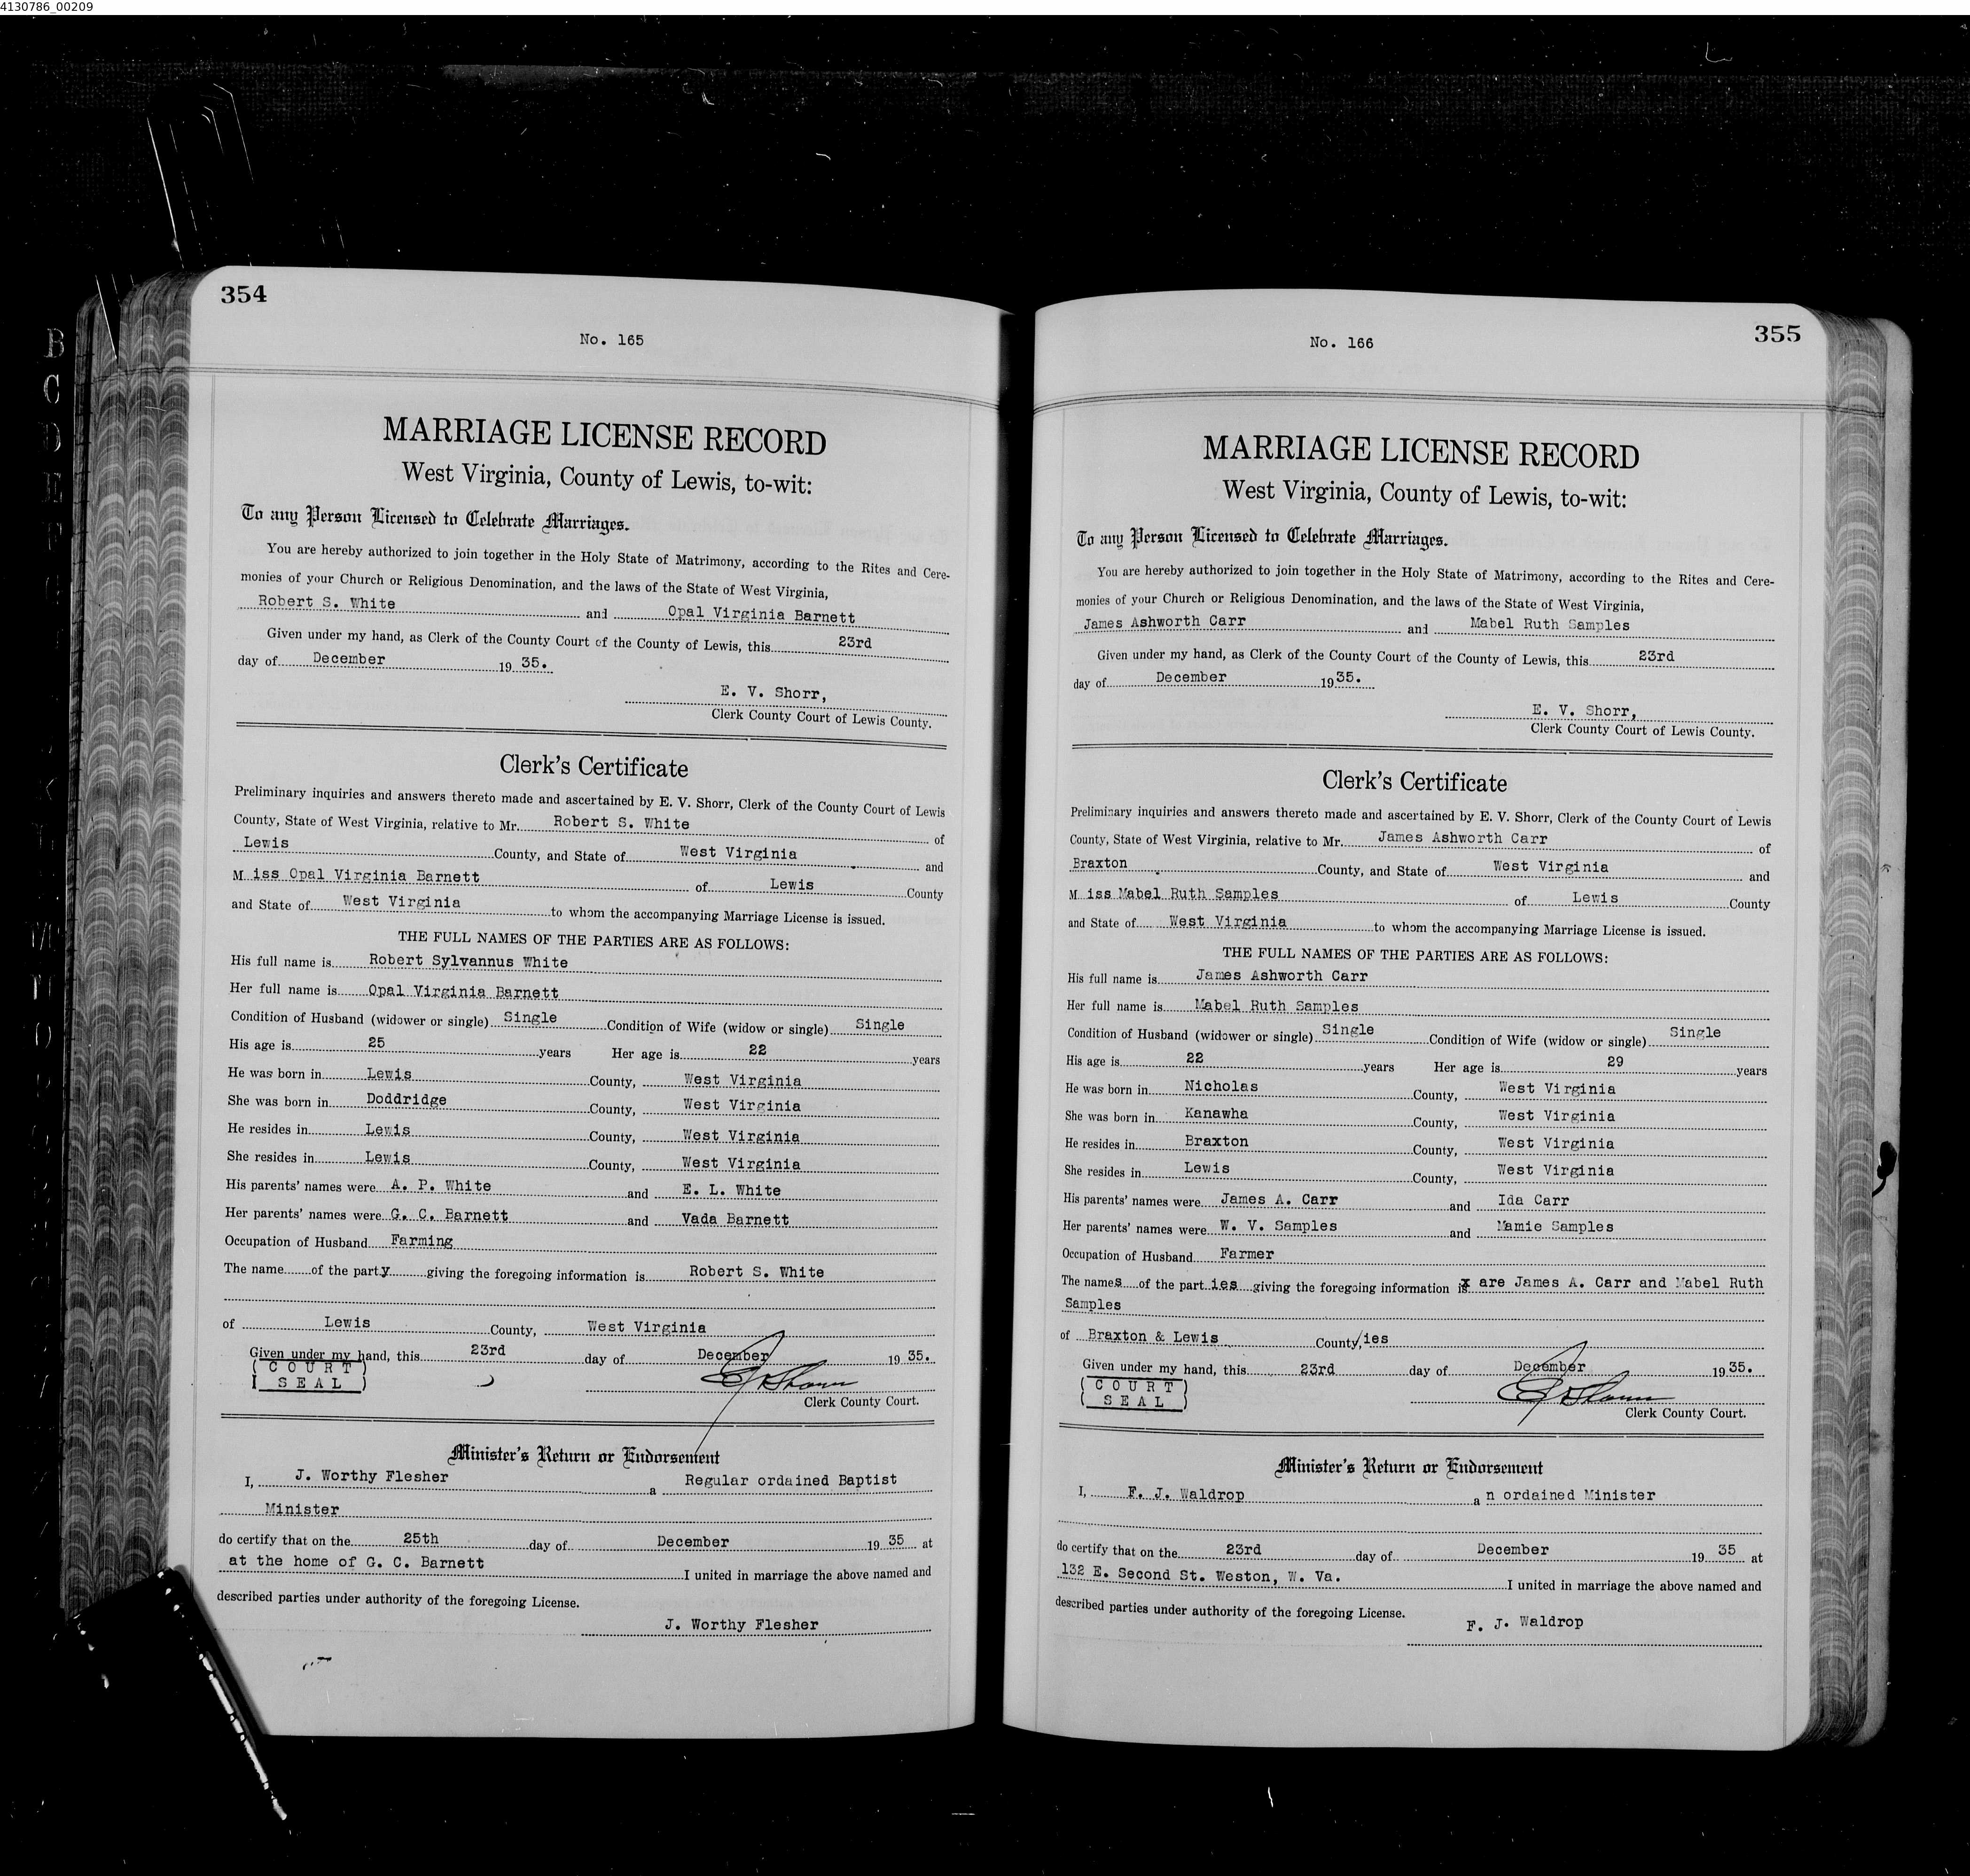 4130786_00209
354
No. 165
MARRIAGE LICENSE RECORD
West Virginia, County of Lewis, to-wit:
To any Person Licensed to Celebrate Marriages.
You are hereby authorized to join together in the Holy State of Matrimony, according to the Rites and Cere-
monies of your Church or Religious Denomination, and the laws of the State of West Virginia,
Robert S. White and Opal Virginia Barnett
Given under my hand, as Clerk of the County Court of the County of Lewis, this 23rd
day of December 1935.
E. V. Shorr,
Clerk County Court of Lewis County.
Clerk's Certificate
Preliminary inquiries and answers thereto made and ascertained by E. V. Shorr, Clerk of the County Court of Lewis
County, State of West Virginia, relative to Mr. Robert S. White of
Lewis County, and State of West Virginia and
Miss Opal Virginia Barnett of Lewis County
and State of West Virginia to whom the accompanying Marriage License is issued.
THE FULL NAMES OF THE PARTIES ARE AS FOLLOWS:
His full name is Robert Sylvannus White
Her full name is Opal Virginia Barnett
Condition of Husband (widower or single) Single Condition of Wife (widow or single) Single
His age is 25 years Her age is 22 years
He was born in Lewis County, West Virginia
She was born in Doddridge County, West Virginia
He resides in Lewis County, West Virginia
She resides in Lewis County, West Virginia
His parents' names were A. P. White and E. L. White
Her parents' names were G. C. Barnett and Vada Barnett
Occupation of Husband Farming
The name of the party giving the foregoing information is Robert S. White
of Lewis County, West Virginia
Given under my hand, this 23rd day of December 1935.
COURT
SEAL
E V Shorr
Clerk County Court.
Minister's Return or Endorsement
I, J. Worthy Flesher a Regular ordained Baptist
Minister
do certify that on the 25th day of December 1935 at
at the home of G. C. Barnett I united in marriage the above named and
described parties under authority of the foregoing License.
J. Worthy Flesher
355
No. 166
MARRIAGE LICENSE RECORD
West Virginia, County of Lewis, to-wit:
To any Person Licensed to Celebrate Marriages.
You are hereby authorized to join together in the Holy State of Matrimony, according to the Rites and Cere-
monies of your Church or Religious Denomination, and the laws of the State of West Virginia,
James Ashworth Carr and Mabel Ruth Samples
Given under my hand, as Clerk of the County Court of the County of Lewis, this 23rd
day of December 1935.
E. V. Shorr,
Clerk County Court of Lewis County.
Clerk's Certificate
Preliminary inquiries and answers thereto made and ascertained by E. V. Shorr, Clerk of the County Court of Lewis
County, State of West Virginia, relative to Mr. James Ashworth Carr of
Braxton County, and State of West Virginia and
Miss Mabel Ruth Samples of Lewis County
and State of West Virginia to whom the accompanying Marriage License is issued.
THE FULL NAMES OF THE PARTIES ARE AS FOLLOWS:
His full name is James Ashworth Carr
Her full name is Mabel Ruth Samples
Condition of Husband (widower or single) Single Condition of Wife (widow or single) Single
His age is 22 years Her age is 29 years
He was born in Nicholas County, West Virginia
She was born in Kanawha County, West Virginia
He resides in Braxton County, West Virginia
She resides in Lewis County, West Virginia
His parents' names were James A. Carr and Ida Carr
Her parents' names were W. V. Samples and Mamie Samples
Occupation of Husband Farmer
The names of the parties giving the foregoing information is x are James A. Carr and Mabel Ruth
Samples
of Braxton & Lewis County/ies
Given under my hand, this 23rd day of December 1935.
COURT
SEAL
E V Shorr
Clerk County Court.
Minister's Return or Endorsement
I, F. J. Waldrop an ordained Minister
do certify that on the 23rd day of December 1935 at
132 E. Second St. Weston, W. Va. I united in marriage the above named and
described parties under authority of the foregoing License.
F. J. Waldrop
B
C
D
E
F
G